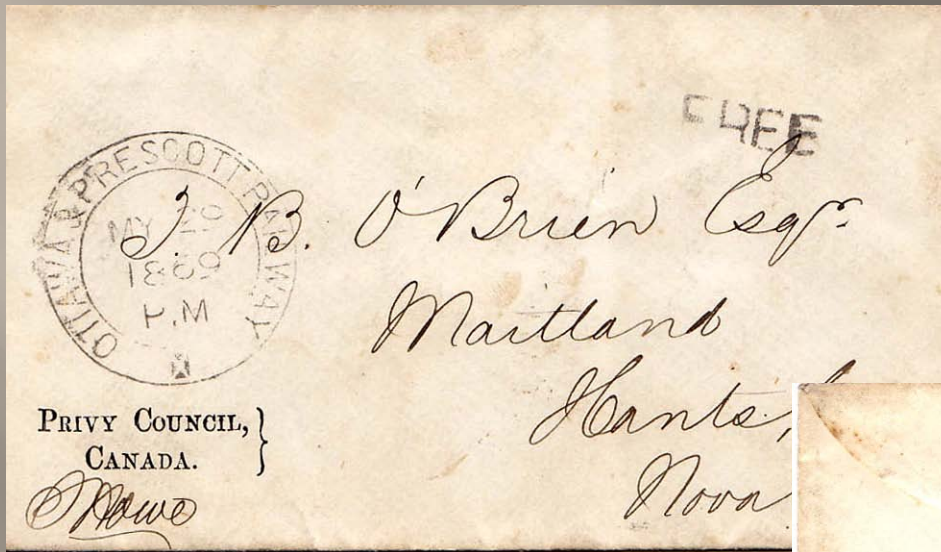 FREE
OTTAWA & PRESCOTT RAILWAY
MY 29
1869
P.M
J. B. O'Brien Esqr.
Maitland
Hants,
Nova
PRIVY COUNCIL,
CANADA.
Howe